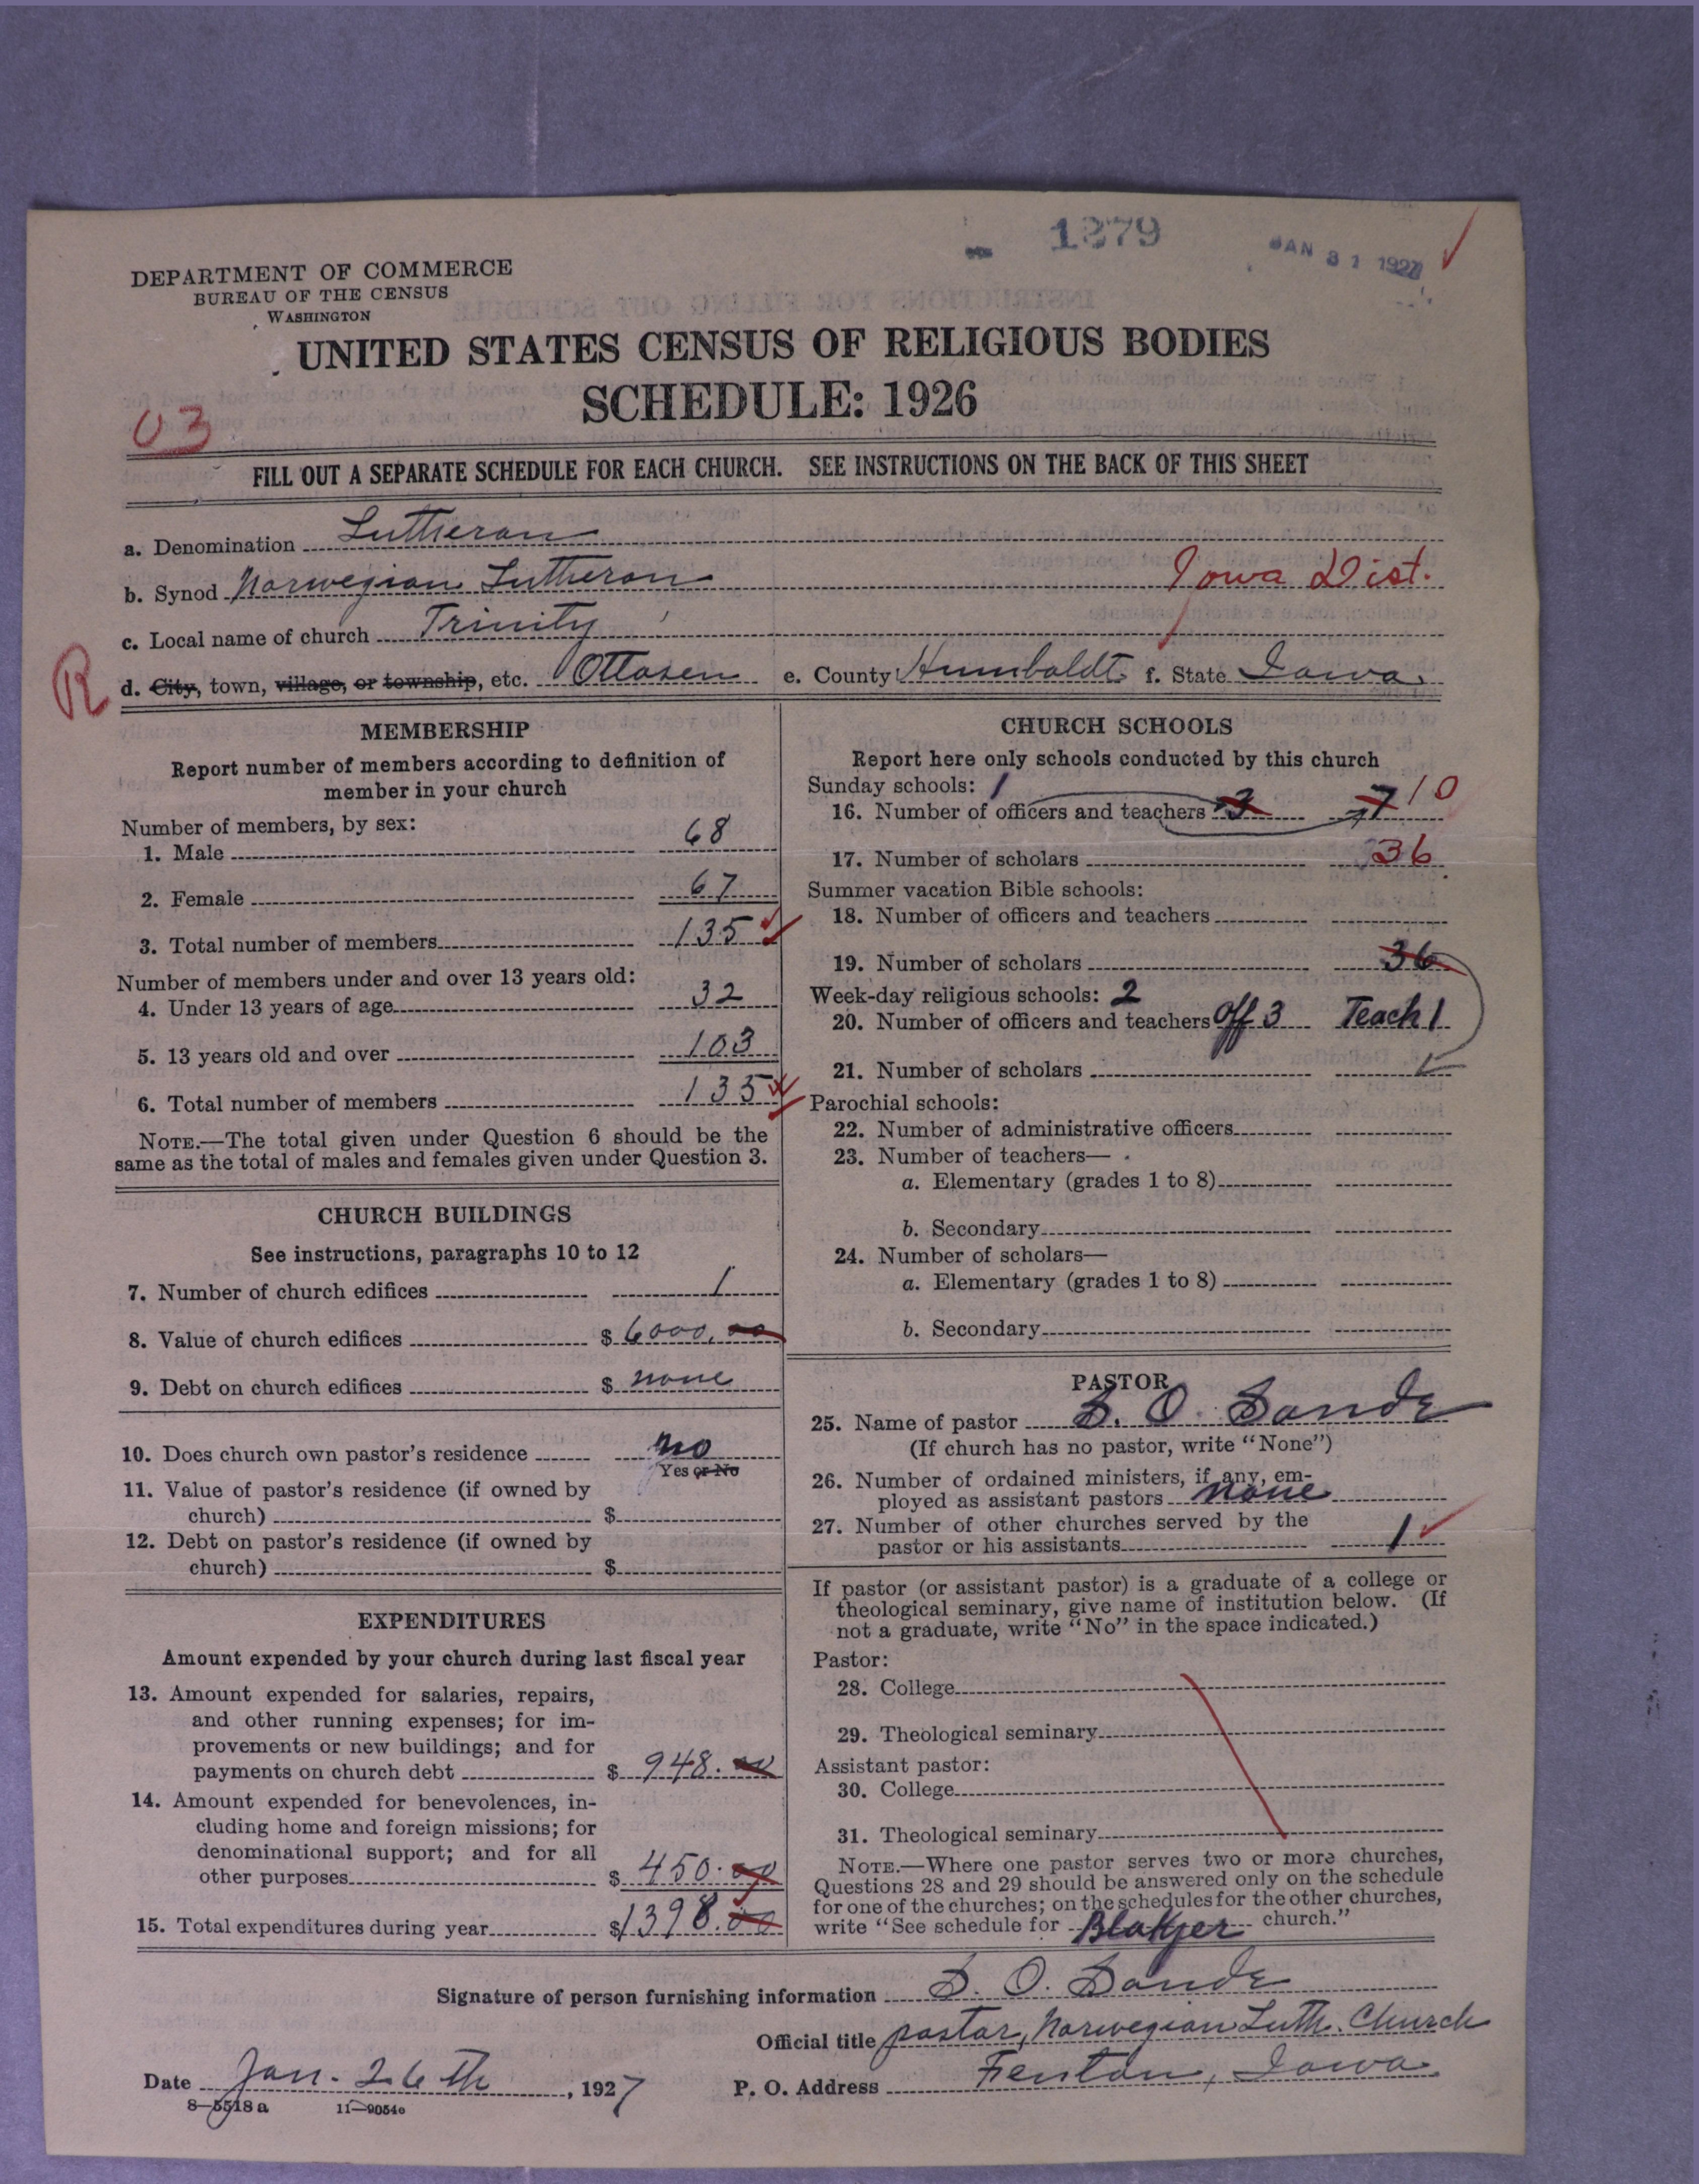 1279
JAN 31 1927
DEPARTMENT OF COMMERCE
BUREAU OF THE CENSUS
WASHINGTON
UNITED STATES CENSUS OF RELIGIOUS BODIES
SCHEDULE: 1926
03
FILL OUT A SEPARATE SCHEDULE FOR EACH CHURCH. SEE INSTRUCTIONS ON THE BACK OF THIS SHEET
a. Denomination Lutheran
b. Synod Norwegian Lutheran Iowa Dist.
c. Local name of church Trinity
R
d. City, town, village, or township, etc. Ottosen e. County Humboldt f. State Iowa.
MEMBERSHIP
Report number of members according to definition of
member in your church
Number of members, by sex:
1. Male 68
2. Female 67
3. Total number of members 135
Number of members under and over 13 years old:
4. Under 13 years of age 32
5. 13 years old and over 103
6. Total number of members 135
NOTE.—The total given under Question 6 should be the
same as the total of males and females given under Question 3.
CHURCH BUILDINGS
See instructions, paragraphs 10 to 12
7. Number of church edifices 1
8. Value of church edifices $ 6000.00
9. Debt on church edifices $ none
10. Does church own pastor's residence no
Yes or No
11. Value of pastor's residence (if owned by
church) $
12. Debt on pastor's residence (if owned by
church) $
EXPENDITURES
Amount expended by your church during last fiscal year
13. Amount expended for salaries, repairs,
and other running expenses; for im-
provements or new buildings; and for
payments on church debt $ 948.00
14. Amount expended for benevolences, in-
cluding home and foreign missions; for
denominational support; and for all
other purposes $ 450.00
15. Total expenditures during year $1398.00
CHURCH SCHOOLS
Report here only schools conducted by this church
Sunday schools: 1
16. Number of officers and teachers 3 7 10
17. Number of scholars 36
Summer vacation Bible schools:
18. Number of officers and teachers
19. Number of scholars 36
Week-day religious schools: 2
20. Number of officers and teachers Off 3 Teach 1
21. Number of scholars
Parochial schools:
22. Number of administrative officers
23. Number of teachers—
a. Elementary (grades 1 to 8)
b. Secondary
24. Number of scholars—
a. Elementary (grades 1 to 8)
b. Secondary
PASTOR
25. Name of pastor S. O. Sande
(If church has no pastor, write "None")
26. Number of ordained ministers, if any, em-
ployed as assistant pastors none
27. Number of other churches served by the
pastor or his assistants 1
If pastor (or assistant pastor) is a graduate of a college or
theological seminary, give name of institution below. (If
not a graduate, write "No" in the space indicated.)
Pastor:
28. College
29. Theological seminary
Assistant pastor:
30. College
31. Theological seminary
NOTE.—Where one pastor serves two or more churches,
Questions 28 and 29 should be answered only on the schedule
for one of the churches; on the schedules for the other churches,
write "See schedule for Blakjer church."
Signature of person furnishing information S. O. Sande
Official title pastor, Norwegian Luth. Church
Date Jan. 26th, 1927 P. O. Address Fenton, Iowa.
8—5518a 11—9054c